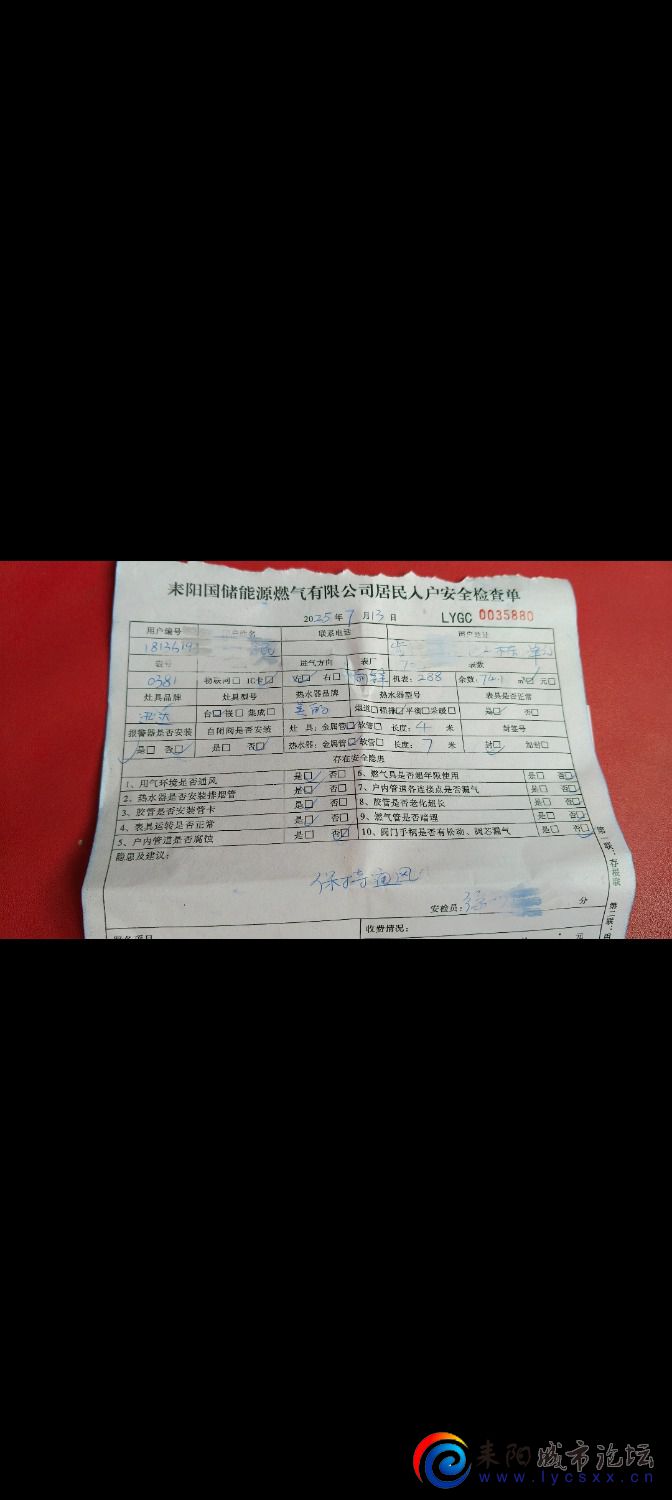 耒阳国储能源燃气有限公司居民入户安全检查单
2025年7月13日 LYGC 0035880
用户编号 用户姓名 联系电话 用户地址
1813619
表号 进气方向 表厂 表数
0381 物联网□ IC卡□ 左□ 右□ 机表:288 余数:741 m³□ 元□
灶具品牌 灶具型号 热水器品牌 热水器型号 表具是否正常
迅达 台□嵌□ 集成□ 美的 烟道□强排□平衡□采暖□ 是□ 否□
报警器是否安装 自闭阀是否安装 灶 具:金属管□软管□ 长度:4 米 封签号
是□ 否□ 是□ 否□ 热水器:金属管□软管□ 长度:7 米 封□ 加封□
存在安全隐患
1、用气环境是否通风 是□ 否□ 6、燃气具是否超年限使用 是□ 否□
2、热水器是否安装排烟管 是□ 否□ 7、户内管道各连接点是否漏气 是□ 否□
3、胶管是否安装管卡 是□ 否□ 8、胶管是否老化超长 是□ 否□
4、表具运转是否正常 是□ 否□ 9、燃气管是否暗埋 是□ 否□
5、户内管道是否腐蚀 是□ 否□ 10、阀门手柄是否有松动、阀芯漏气 是□ 否□
隐患及建议:
保持通风
安检员: 分
收费情况:
元
第一联:存根联 第二联:
耒阳城市论坛
www.lycsxx.cn